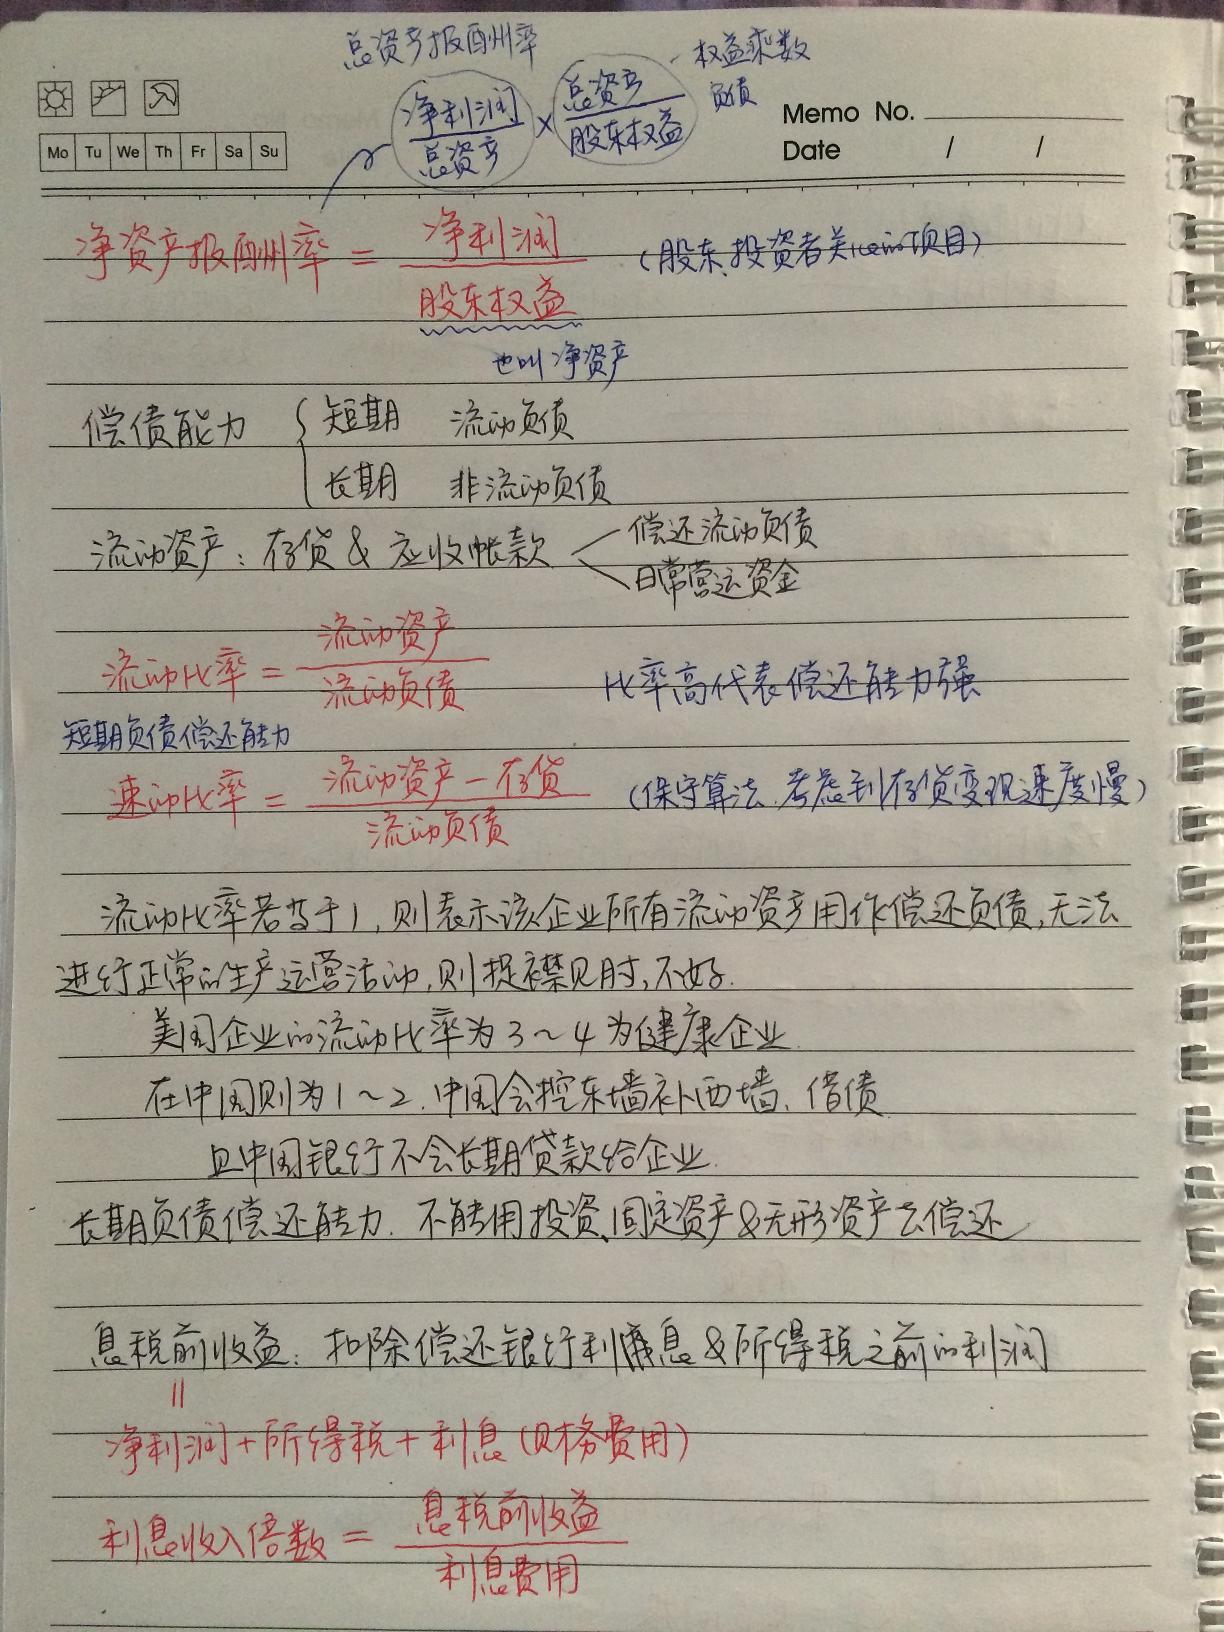 总资产报酬率
权益乘数
负债
净利润/总资产 × 总资产/股东权益
Memo No.
Date / /
Mo Tu We Th Fr Sa Su
净资产报酬率 = 净利润/股东权益 (股东、投资者关心的项目)
也叫净资产
偿债能力 { 短期 流动负债
长期 非流动负债
流动资产: 存货 & 应收帐款 < 偿还流动负债
日常营运资金
流动比率 = 流动资产/流动负债 比率高代表偿还能力强
短期负债偿还能力
速动比率 = 流动资产-存货/流动负债 (保守算法,考虑到存货变现速度慢)
流动比率若等于1,则表示该企业所有流动资产用作偿还负债,无法
进行正常的生产运营活动,则捉襟见肘,不好.
美国企业的流动比率为3~4为健康企业.
在中国则为1~2.中国会挖东墙补西墙、借债
且中国银行不会长期贷款给企业.
长期负债偿还能力.不能用投资、固定资产&无形资产去偿还
息税前收益: 扣除偿还银行利息&所得税之前的利润
=
净利润+所得税+利息(财务费用)
利息收入倍数 = 息税前收益/利息费用